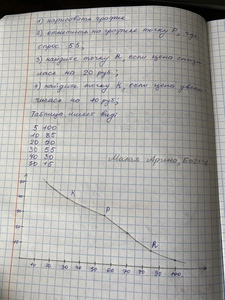 1) нарисовать график
2) отметить на графике точку P, где
спрос 55,
3) найдите точку K, если цена снизи
лась на 20 руб,
4) найдите точку R, если цена увели
чилась на 40 руб.
Таблица имеет вид:
5 100
10 85
20
30 55
40 30
50 15
Малая Арина,
K
P
R